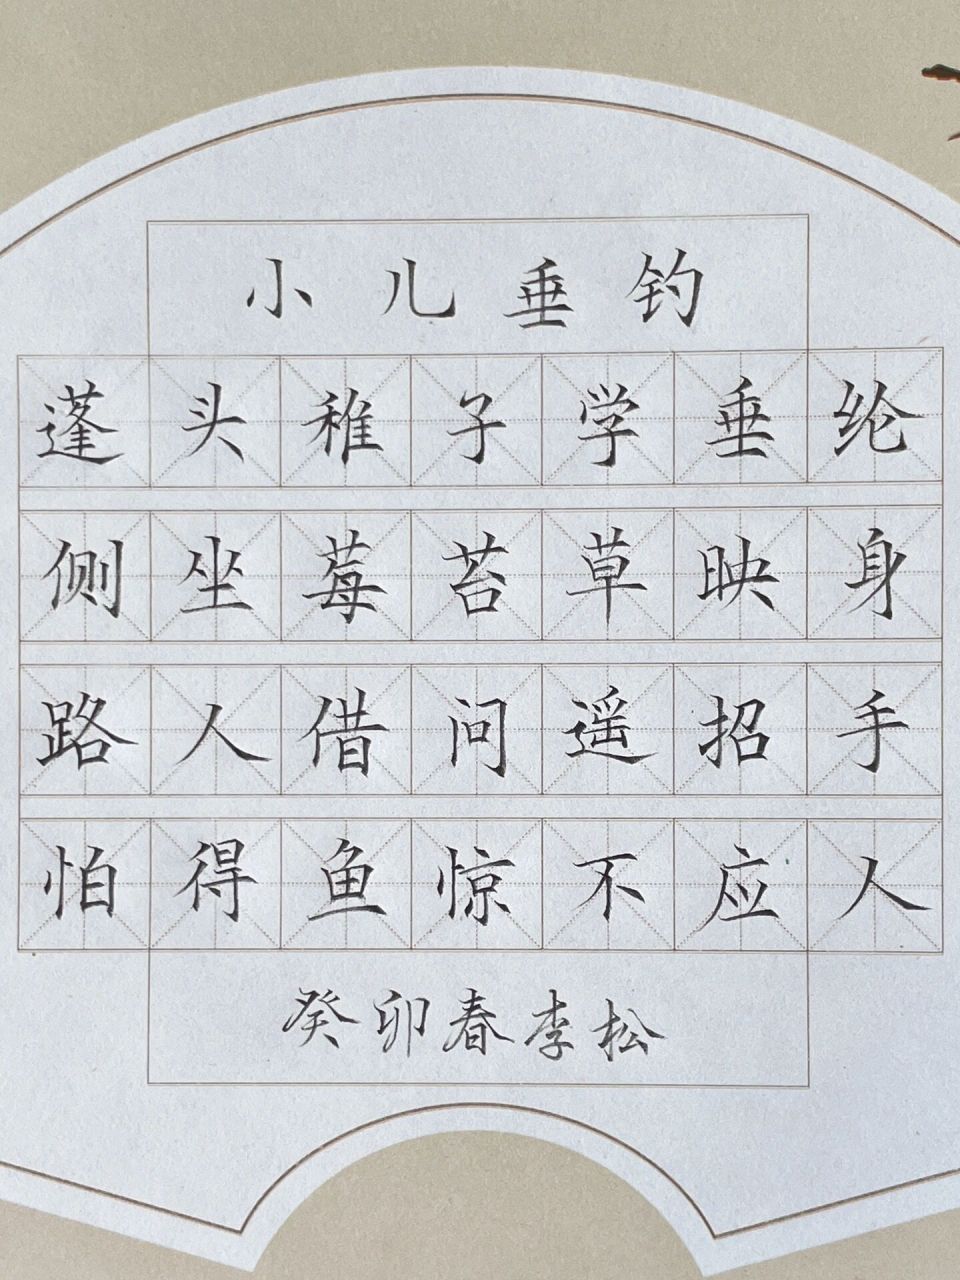 小儿垂钓
蓬头稚子学垂纶
侧坐莓苔草映身
路人借问遥招手
怕得鱼惊不应人
癸卯春李松